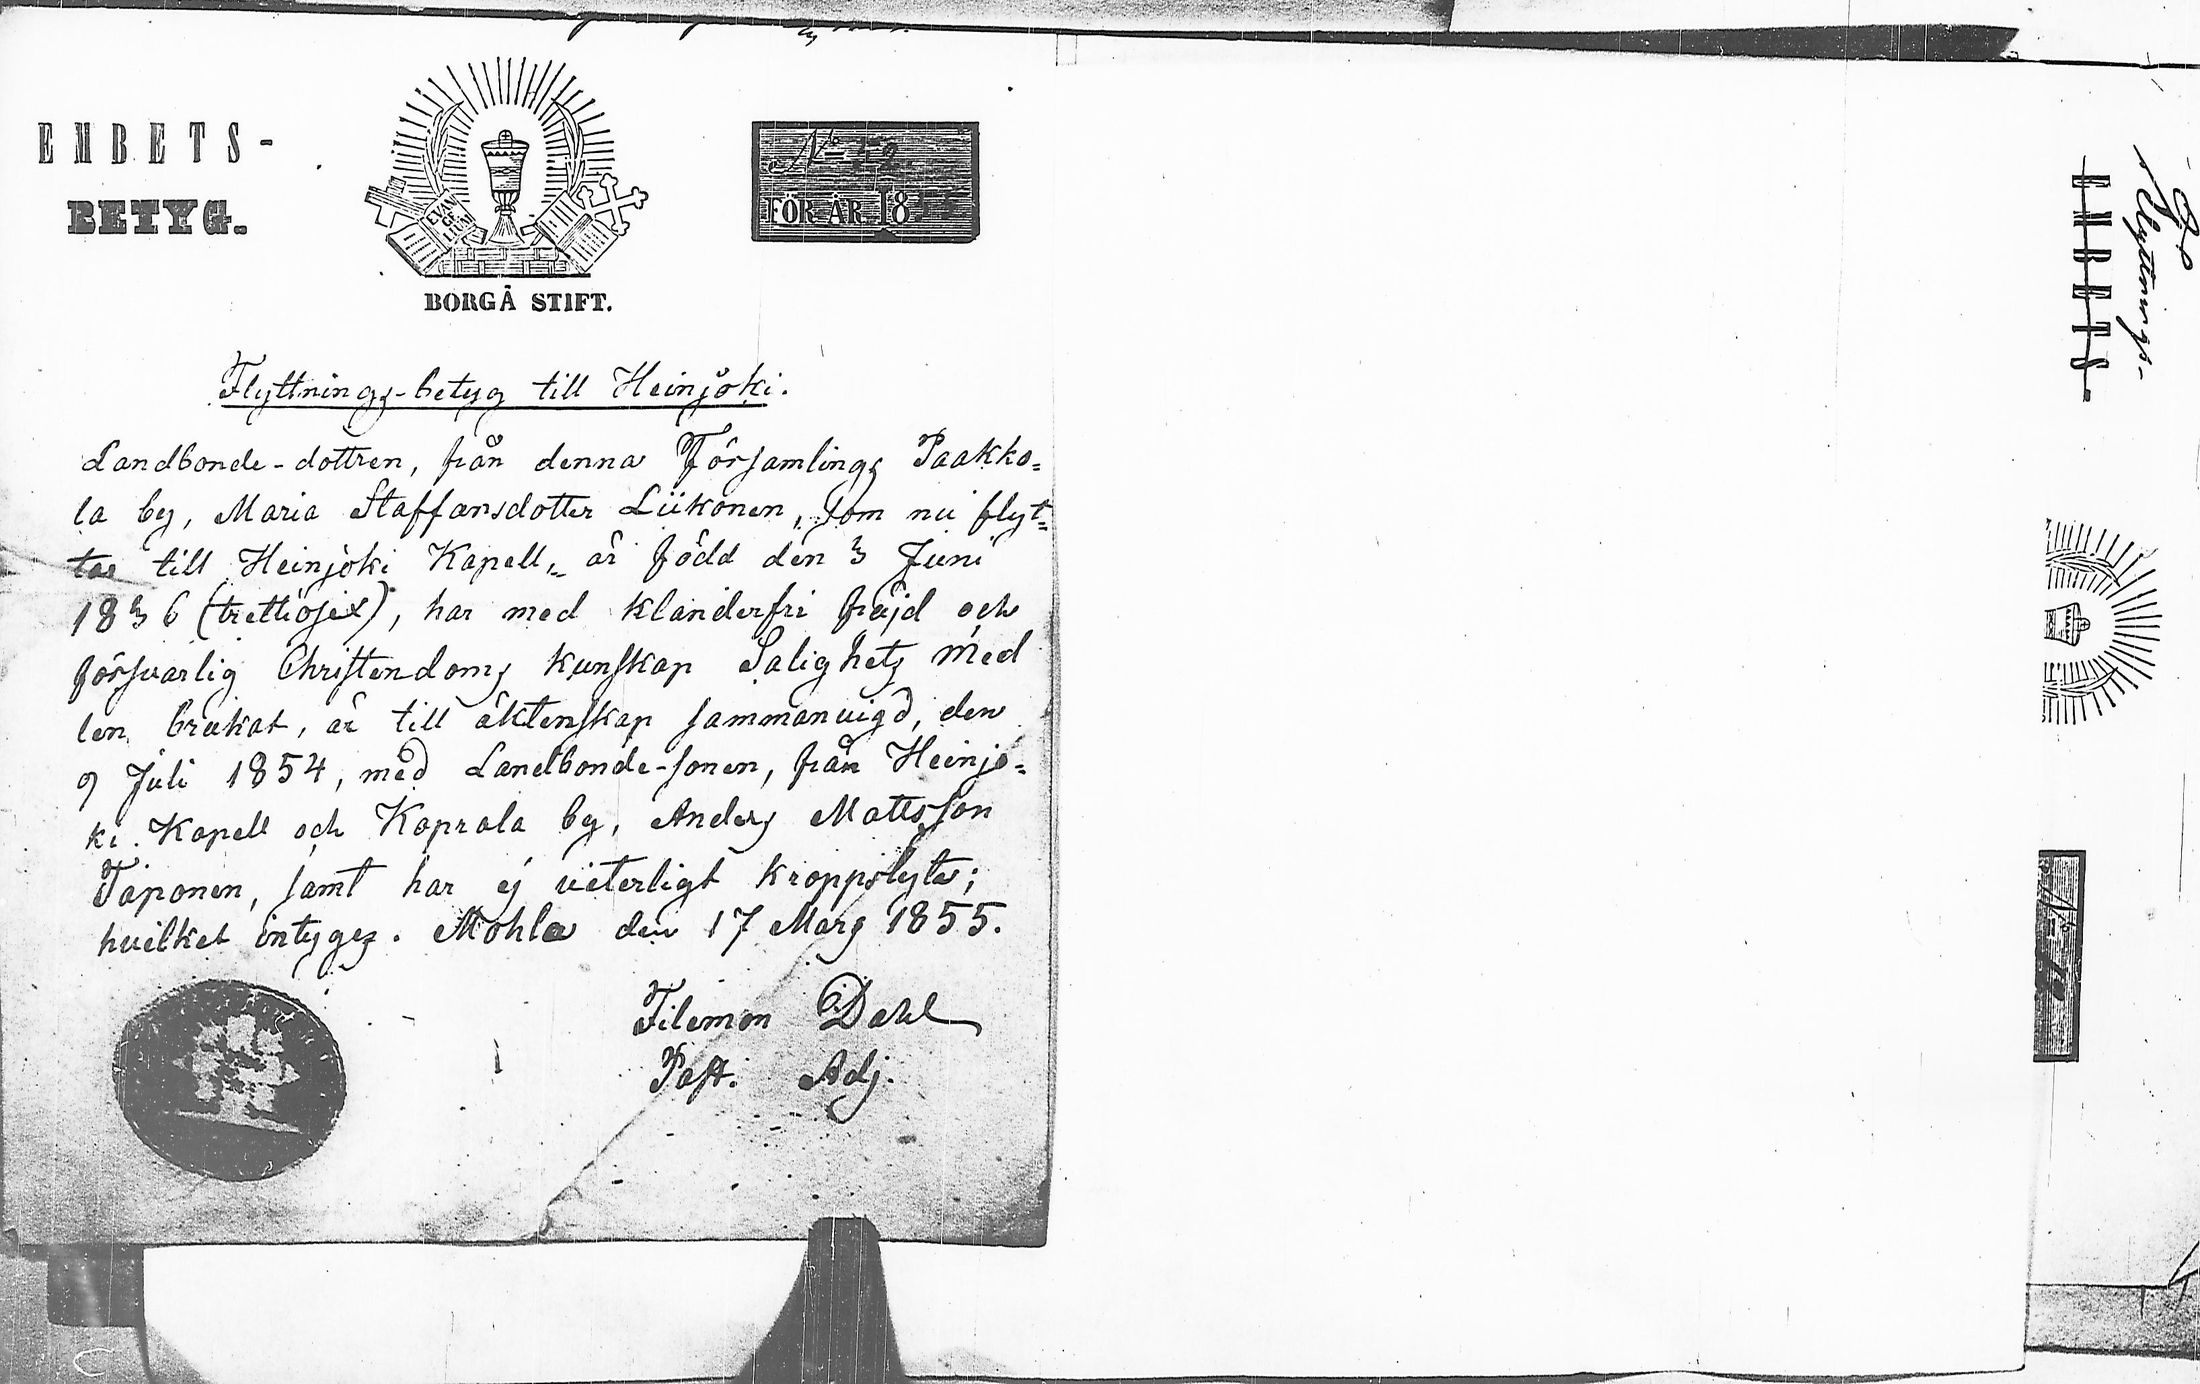 EMBETS-
BETYG.
BORGÅ STIFT.
No 12
FÖR ÅR 18
Flyttnings-betyg till Heinjoki.
Landbonde-dottren, från denna Församlings Paakko=
la by, Maria Staffansdotter Liikonen, som nu flyt=
tar till Heinjoki Kapell, är född den 3 Juni
1836 (trettiosex), har med klanderfri fräjd och
försvarlig Christendoms kunskap Salighets Med
len brukat, är till äktenskap sammanvigd, den
9 Juli 1854, med Landbonde-sonen, från Heinjo=
ki Kapell och Kaprala by, Anders Mattsson
Taponen, samt har ej veterligt kroppslyte;
hvilket intygas. Mohla den 17 Mars 1855.
Filemon Dahl
Past. Adj.
Flyttnings-
EMBETS-
No